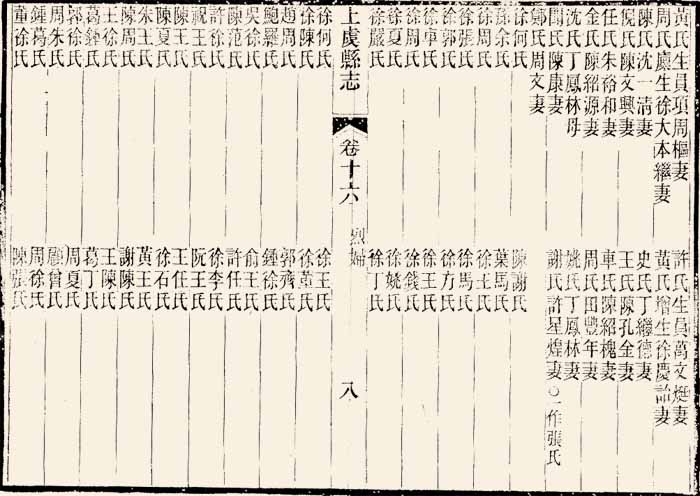 黃氏生員項周樞妻 許氏生員萬文烶妻
周氏廳生徐大本繼妻 黃氏增生徐慶詒妻
陳氏沈一清妻 史氏丁繼德妻
倪氏陳文興妻 王氏陳孔金妻
任氏朱裕和妻 車氏陳紹槐妻
金氏陳紹源妻 周氏田豐年妻
沈氏丁鳳林母 姚氏丁鳳林妻
氏陳康妻 謝氏許星煌妻○一作張氏
鄭氏周文妻
徐何氏 陳謝氏
孫余氏 葉馬氏
徐周氏 徐王氏
徐張氏 徐馬氏
徐郭氏 徐方氏
徐卓氏 徐王氏
徐周氏 徐錢氏
徐夏氏 徐姚氏
徐嚴氏 徐丁氏
上虞縣志 卷十六 烈婦 八
徐何氏 徐王氏
徐陳氏 徐董氏
趙周氏 郭齊氏
鮑羅氏 鍾徐氏
吳徐氏 俞王氏
陳范氏 許任氏
許徐氏 徐李氏
祝王氏 阮王氏
陳王氏 王任氏
陳夏氏 徐石氏
朱王氏 黃王氏
陳周氏 謝陳氏
王徐氏 王陳氏
葛鍾氏 葛丁氏
郭徐氏 周夏氏
周朱氏 曾氏
鍾葛氏 周徐氏
董徐氏 陳張氏